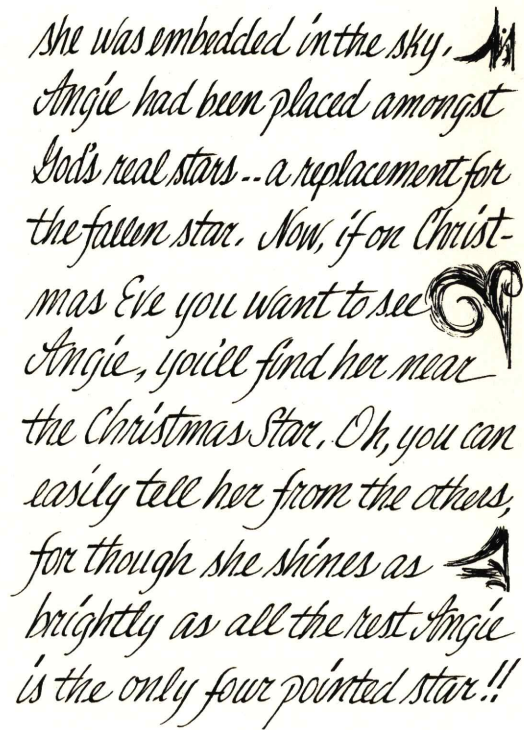 she was embedded in the sky.
Angie had been placed amongst
God's real stars -- a replacement for
the fallen star. Now, if on Christ-
mas Eve you want to see
Angie, you'll find her near
the Christmas Star. Oh, you can
easily tell her from the others,
for though she shines as
brightly as all the rest Angie
is the only four pointed star!!